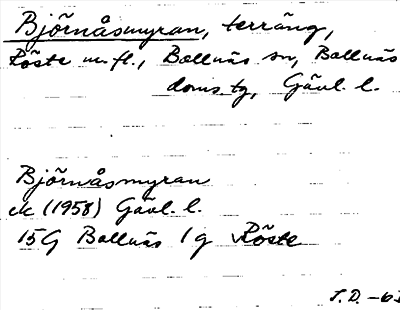 Björnåsmyran, terräng,
Röste m.fl., Bollnäs sn, Bollnäs
doms.tg, Gävl. l.
Björnåsmyran
ek (1958) Gävl. l.
15G Bollnäs 1g Röste
J.D. -63